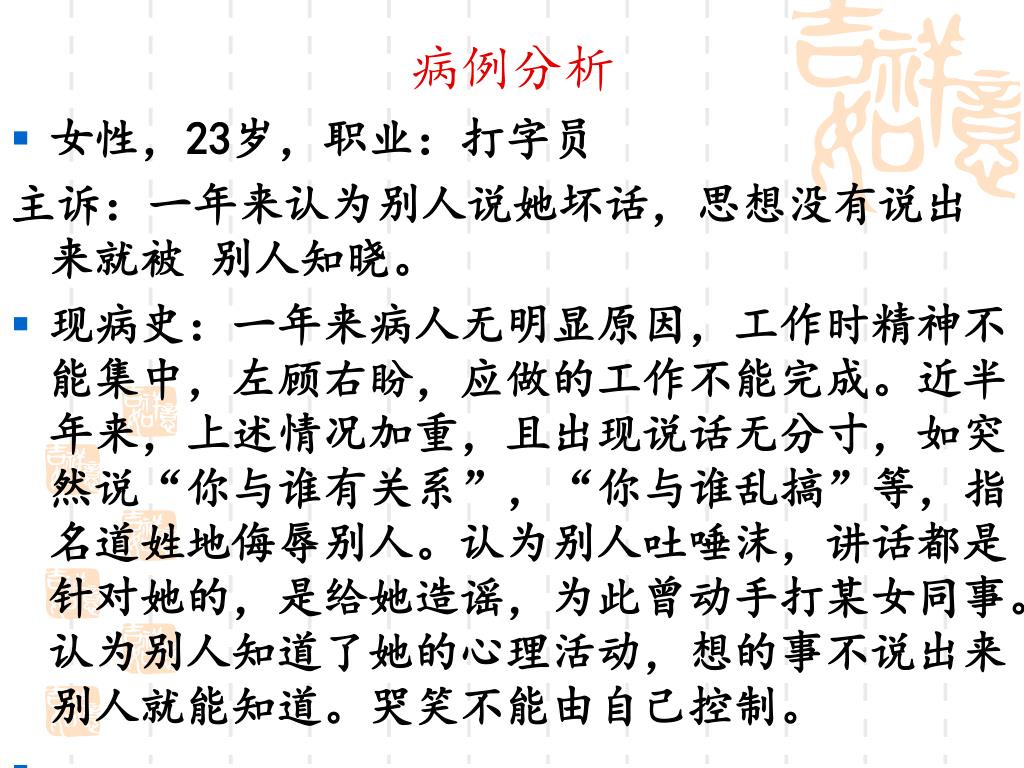 吉祥如意
病例分析
女性，23岁，职业：打字员
主诉：一年来认为别人说她坏话，思想没有说出
来就被 别人知晓。
现病史：一年来病人无明显原因，工作时精神不
能集中，左顾右盼，应做的工作不能完成。近半
年来，上述情况加重，且出现说话无分寸，如突
然说“你与谁有关系”，“你与谁乱搞”等，指
名道姓地侮辱别人。认为别人吐唾沫，讲话都是
针对她的，是给她造谣，为此曾动手打某女同事。
认为别人知道了她的心理活动，想的事不说出来
别人就能知道。哭笑不能由自己控制。